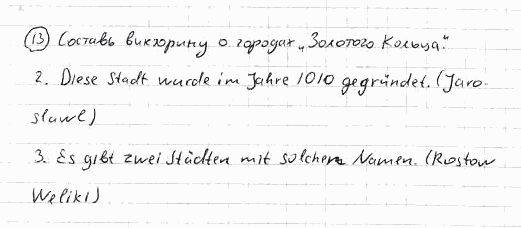 13 Составь викторину о городах „Золотого Кольца".
2. Diese Stadt wurde im Jahre 1010 gegründet. (Jaro-
slawl)
3. Es gibt zwei Städten mit solchen Namen. (Rostow
Weliki)